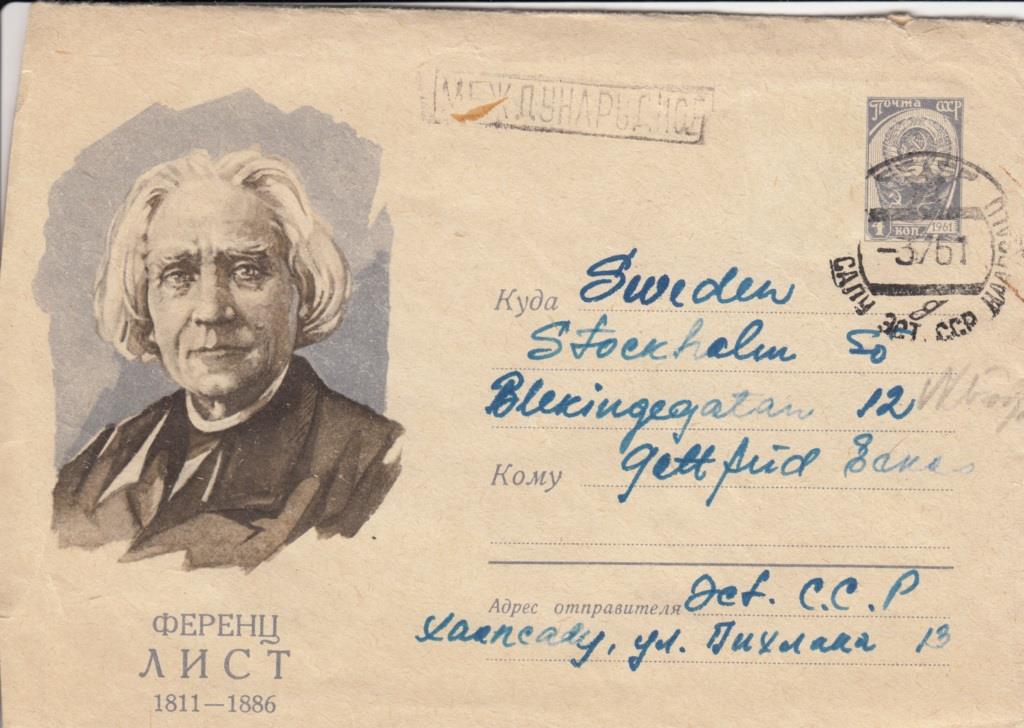 МЕЖДУНАРОДНОЕ
Почта СССР
4 коп. 1961
-3 7 61
ЭСТ. ССР
Куда Sweden
Stockholm Sö
Blekingegatan 12
Кому Gottfrid
Адрес отправителя Эст. С.С.Р
Хаапсалу, ул. Пихлака 13
ФЕРЕНЦ
ЛИСТ
1811—1886